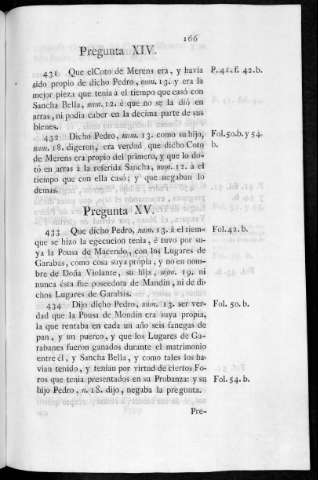 166
Pregunta XIV.
431 Que el Coto de Merens era, y havia P. 41. f. 42. b.
sido propio de dicho Pedro, num. 13. y era la
mejor pieza que tenia à el tiempo que casó con
Sancha Bella, num. 12. è que no se la dió en
arras, ni podia caber en la decima parte de sus
bienes.
432 Dicho Pedro, num. 13. como su hijo, Fol. 50. b. y 54.
num. 18. digeron, era verdad que dicho Coto b.
de Merens era propio del primero, y que lo do-
tó en arras à la referida Sancha, num. 12. à el
tiempo que con ella casó; y que negaban lo
demas.
Pregunta XV.
433 Que dicho Pedro, num. 13. à el tiem- Fol. 42. b.
que se hizo la egecucion tenia, é tuvo por su-
ya la Pousa de Macendo, con los Lugares de
Garabas, como cosa suya propia, y no en nom-
bre de Doña Violante, su hija, num. 19. ni
nunca ésta fue poseedora de Mandin, ni de di-
chos Lugares de Garabás.
434 Dijo dicho Pedro, num. 13. ser ver- Fol. 50. b.
dad que la Pousa de Mondin era suya propia,
la que rentaba en cada un año seis fanegas de
pan, y un puerco, y que los Lugares de Ga-
rabanes fueron ganados durante el matrimonio
entre él, y Sancha Bella, y como tales los ha-
vian tenido, y tenian por virtud de ciertos Fo-
ros que tenia presentados en su Probanza: y su Fol. 54. b.
hijo Pedro, n. 18. dijo, negaba la pregunta.
Pre-